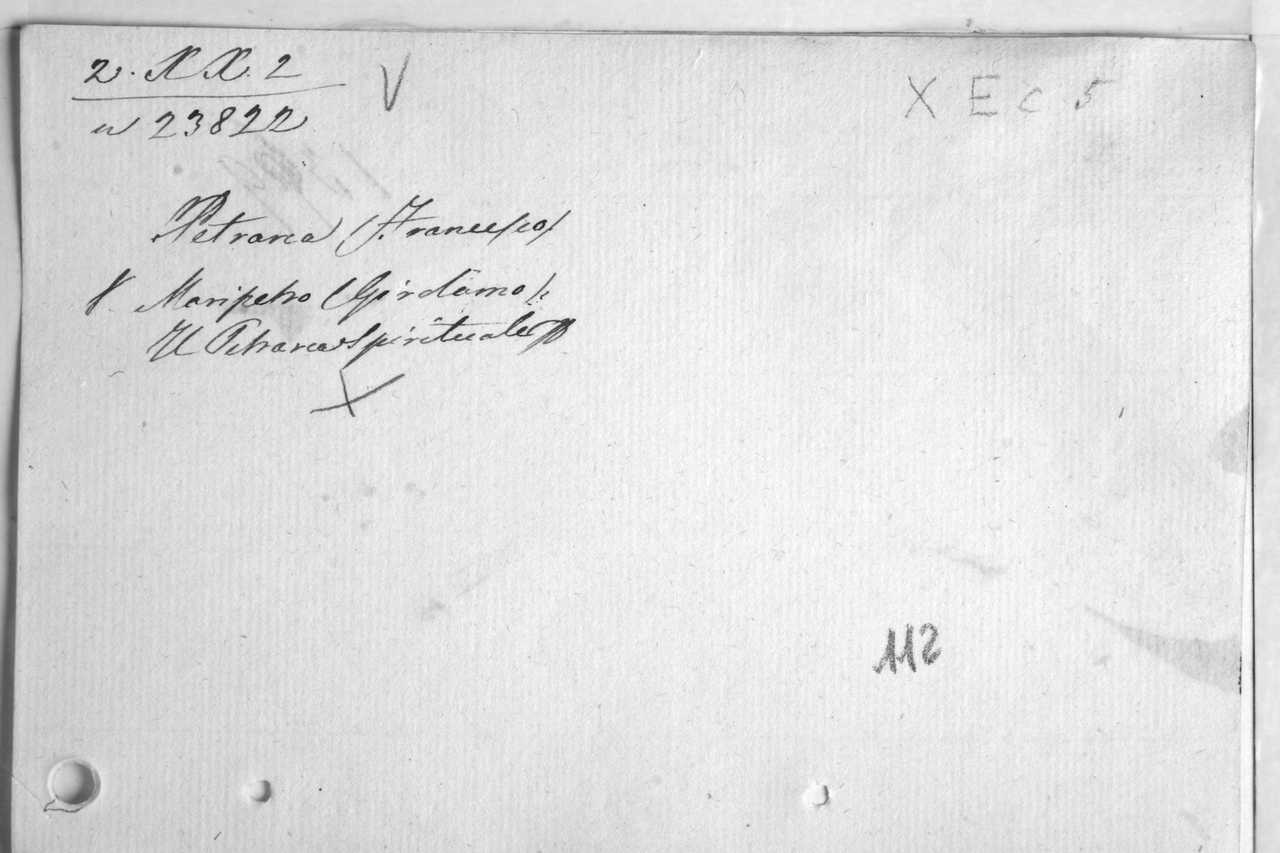 2. XX. 2
V
X E c 5
n 23822
Petrarca (Francesco)
V. Maripetro (Girolamo):
Il Petrarca Spirituale
X
112